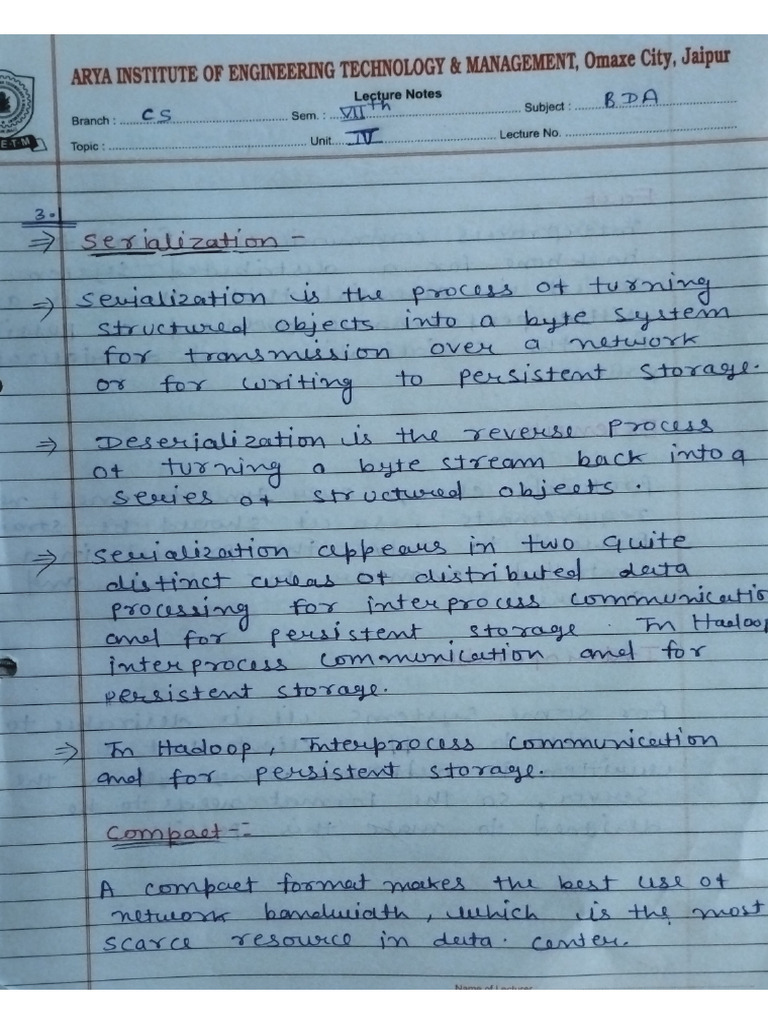 ARYA INSTITUTE OF ENGINEERING TECHNOLOGY & MANAGEMENT, Omaxe City, Jaipur
Lecture Notes
Branch : CS Sem. : VIIth Subject : BDA
Topic : Unit IV Lecture No.
E T M
3.
⇒ Serialization -
⇒ Serialization is the process of turning
structured objects into a byte system
for transmission over a network
or for writing to persistent storage.
⇒ Deserialization is the reverse process
of turning a byte stream back into a
series of structured objects.
⇒ Serialization appears in two quite
distinct areas of distributed data
processing for interprocess communicatio
and for persistent storage. In Hadoop
interprocess communication and for
persistent storage.
⇒ In Hadoop, Interprocess communication
and for persistent storage.
Compact -:
A compact format makes the best use of
network bandwidth, which is the most
scarce resource in data. center.
Name of Lecturer